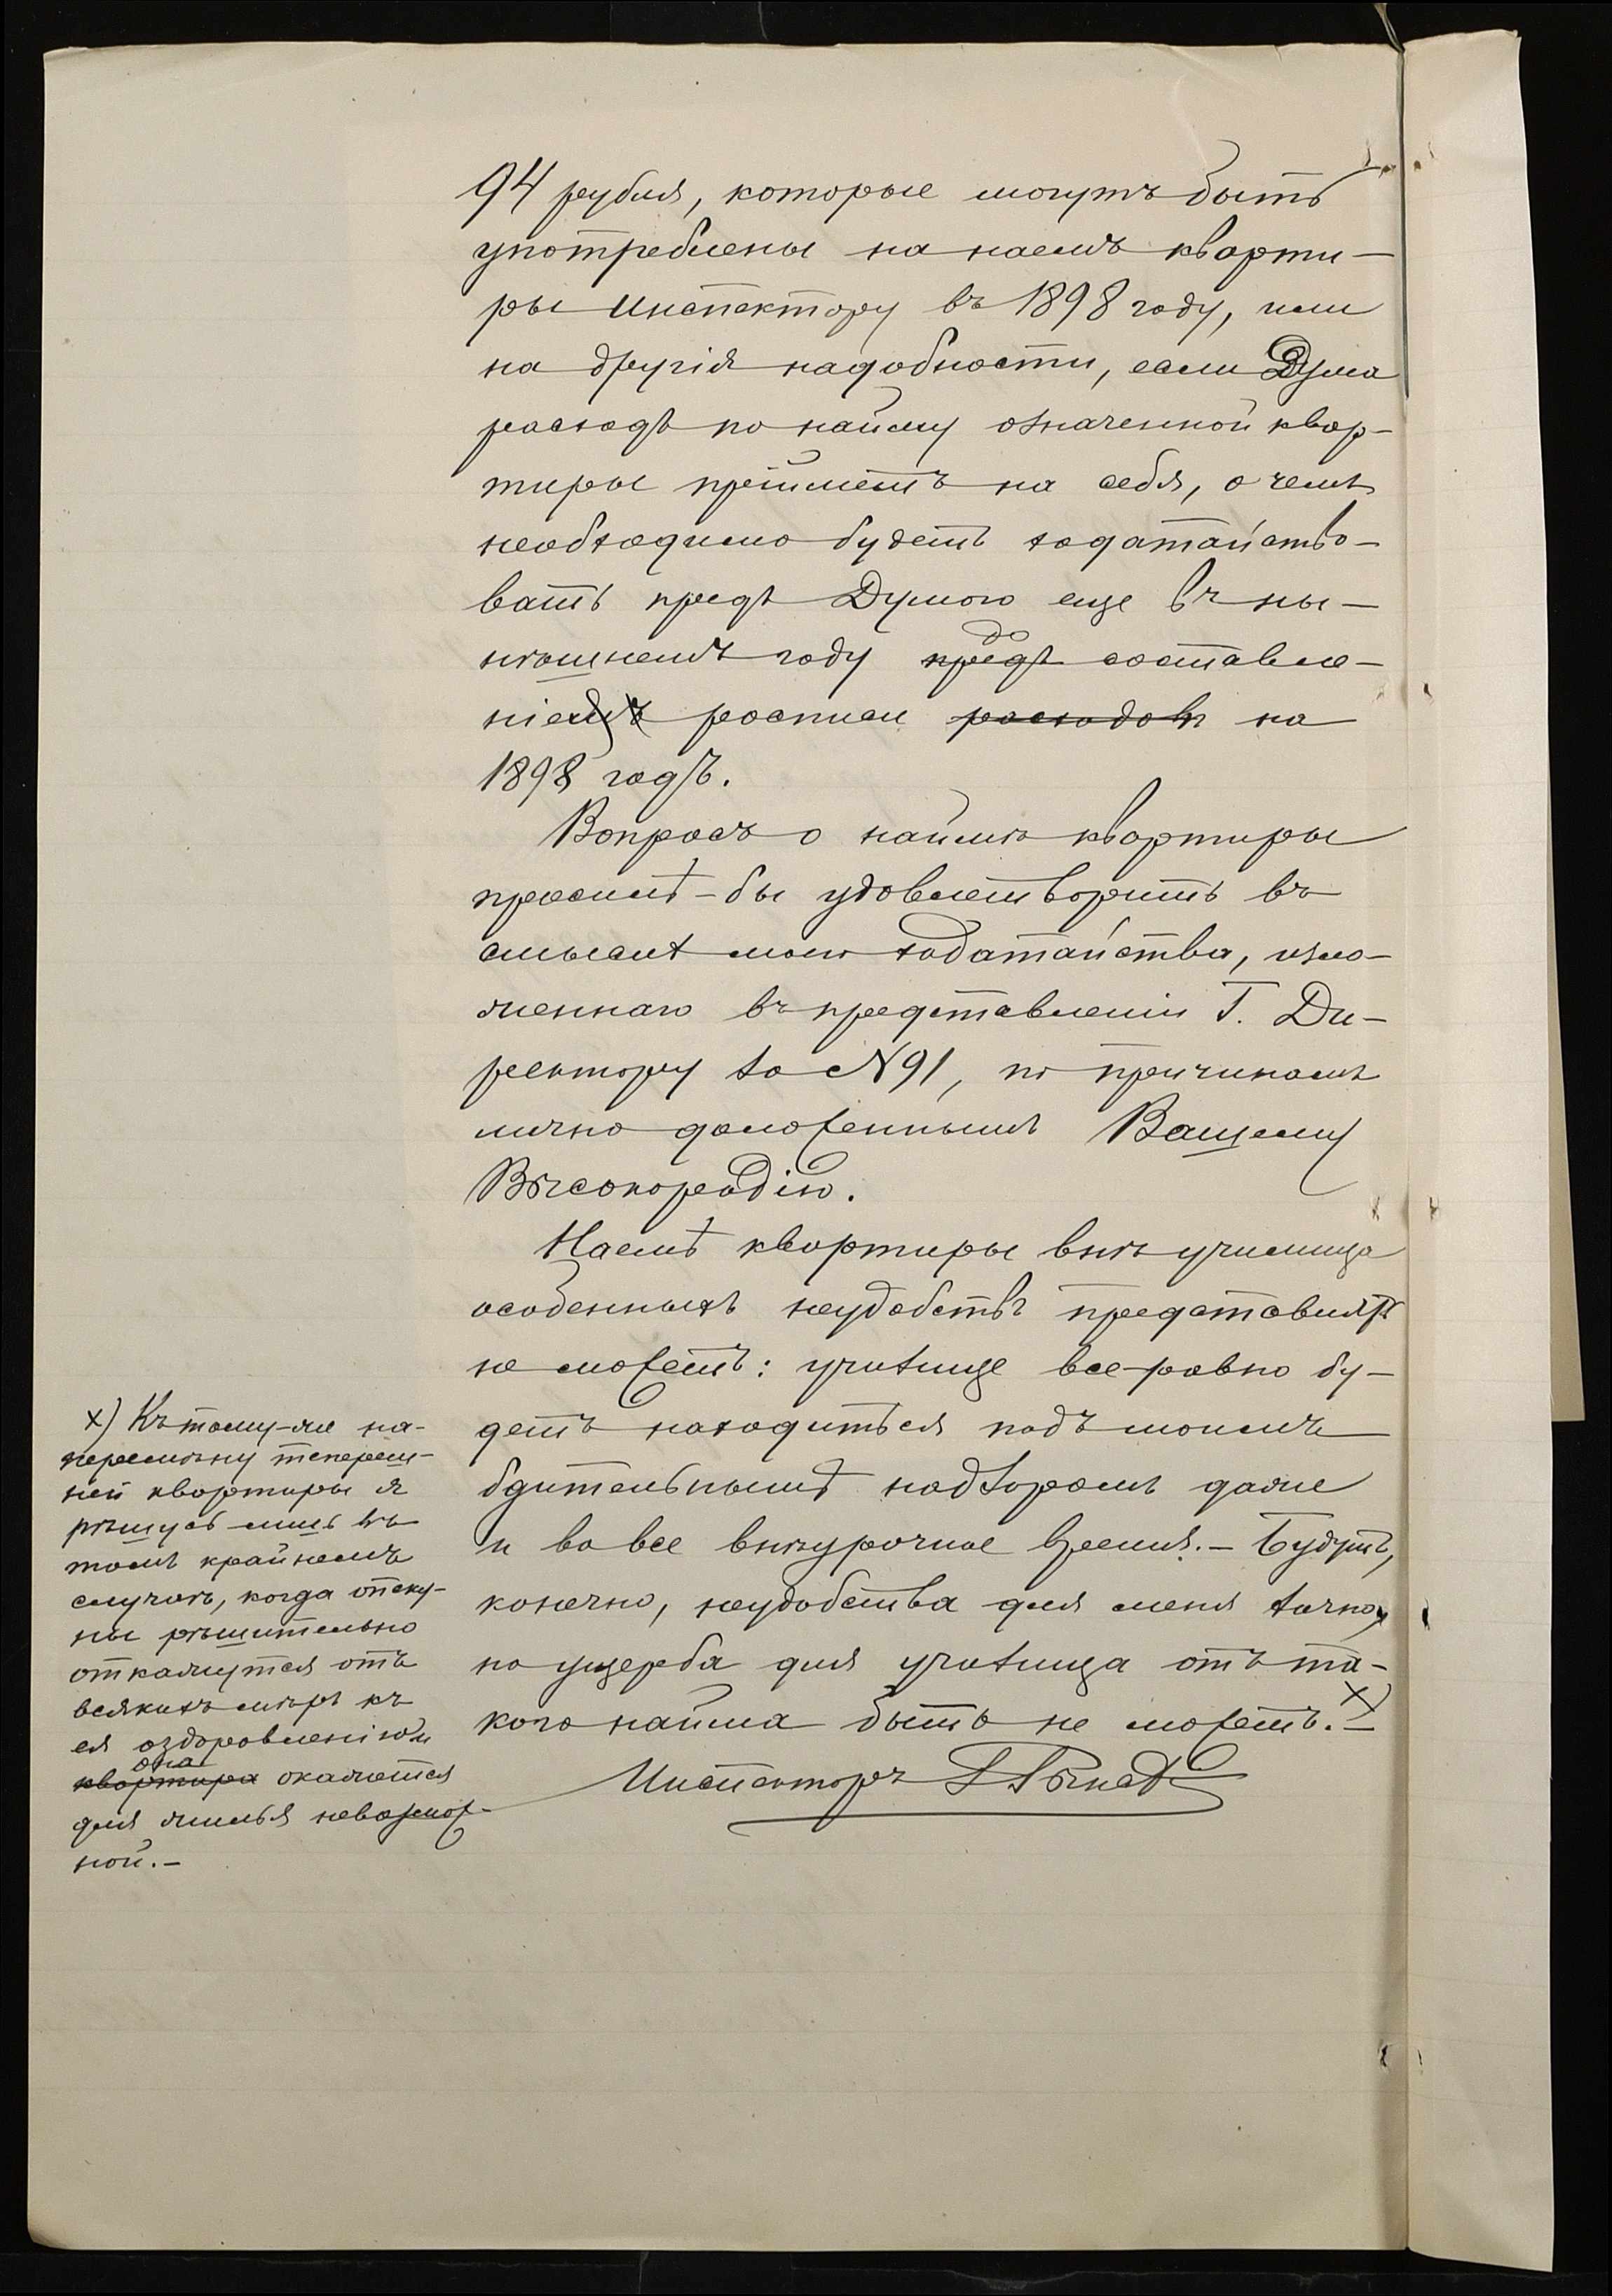 94 рубля, которые могутъ быть
употреблены на наемъ кварти-
ры Инспектору въ 1898 году, или
на другія надобности, если Дума
расходъ по найму означенной квар-
тиры прійметъ на себя, о чемъ
необходимо будетъ ходатайство-
вать предъ Думою еще въ ны-
нѣшнемъ году до предъ составле-
ніемъ росписи расходовъ на
1898 годъ.
Вопросъ о наймѣ квартиры
просилъ-бы удовлетворить въ
смыслѣ моего ходатайства, изло-
женнаго въ представленіи Г. Ди-
ректору за №91, по причинамъ
лично доложеннымъ Вашему
Высокородію.
Наемъ квартиры внѣ училища
особенныхъ неудобствъ представлять
не можетъ: училище все-равно бу-
детъ находиться подъ моимъ
бдительнымъ надзоромъ даже
и во все внѣурочное время.- Будутъ,
конечно, неудобства для меня лично,
но ущерба для училища отъ та-
кого найма быть не можетъ. х)
Инспекторъ
х) Къ тому-же на
перемѣну тепереш-
ней квартиры я
рѣшусь лишь въ
томъ крайнемъ
случаѣ, когда опеку-
ны рѣшительно
откажутся отъ
всякихъ мѣръ къ
ея оздоровленію и
она
квартира окажется
для жилья невозмож-
ной.-